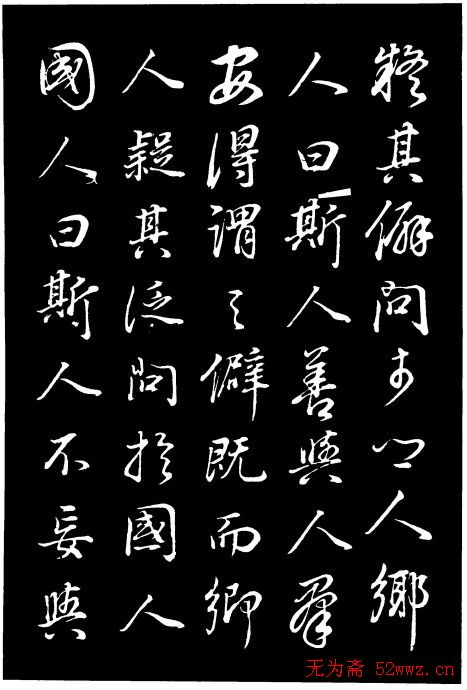 疑其僻問于鄉人鄉
人曰斯人善與人羣
安得謂之僻既而鄉
人疑其泛問於國人
國人曰斯人不妄與
无为斋 52wwz.cn